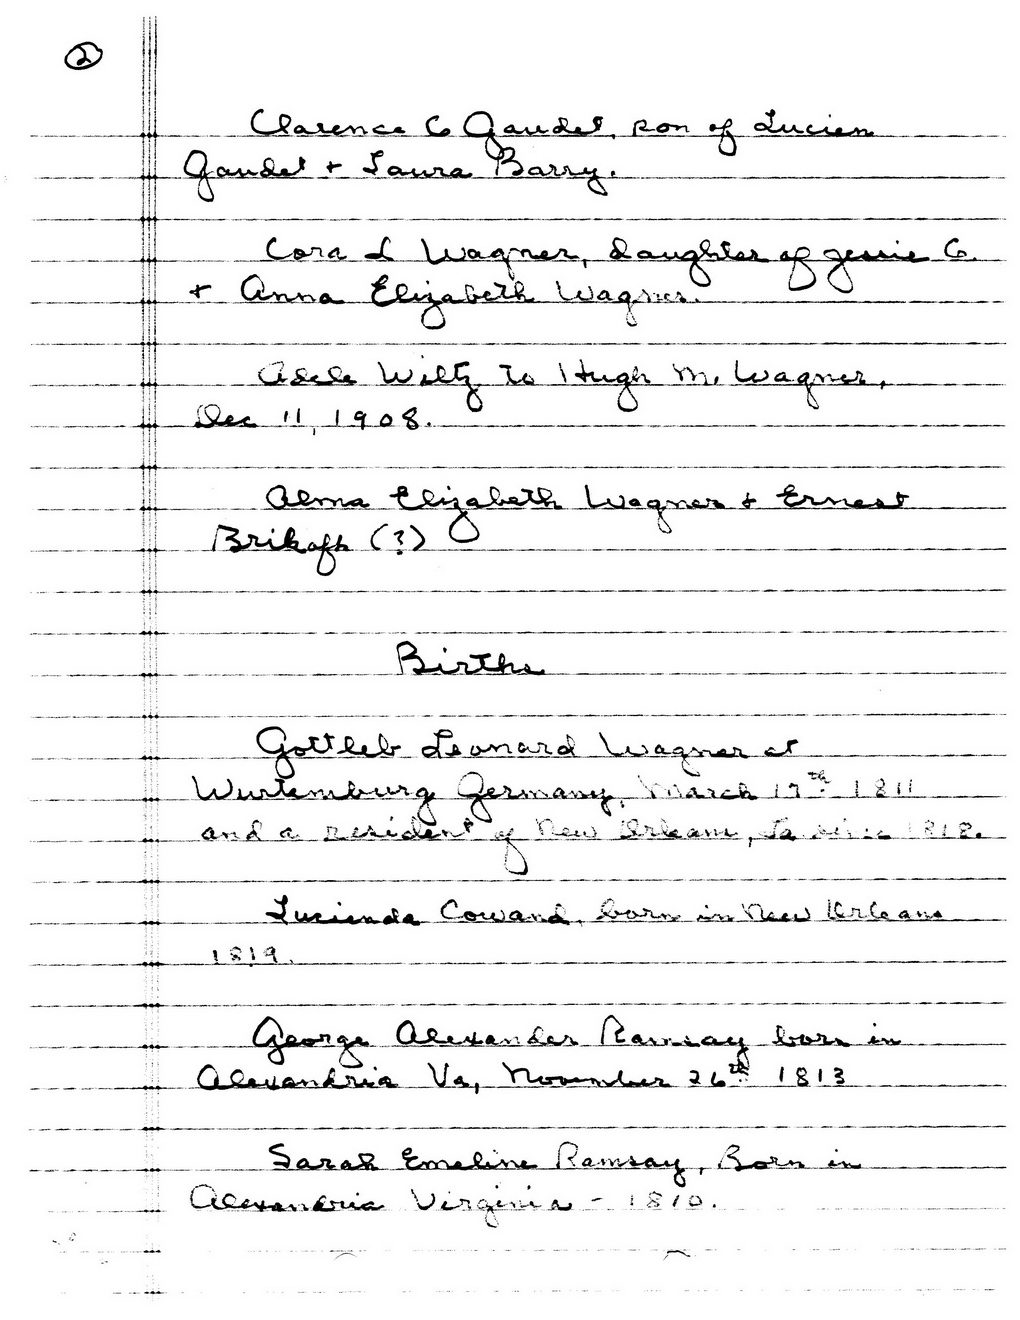 2
Clarence C Gaudet, son of Lucien
Gaudet + Laura Barry.
Cora L Wagner, daughter of Jessie C.
+ Anna Elizabeth Wagner.
Adele Wiltz to Hugh M. Wagner,
Dec 11, 1908.
Alma Elizabeth Wagner + Ernest
(?)
Births
Gottleb Leonard Wagner at
Wurtemburg Germany, March 17th 1811
and a resident of New Orleans, La since 1818.
Lucienda Cowand, born in New Orleans
1819.
George Alexander Ramsay born in
Alexandria Va, November 26th 1813
Sarah Emeline Ramsay, Born in
Alexandria Virginia - 1810.